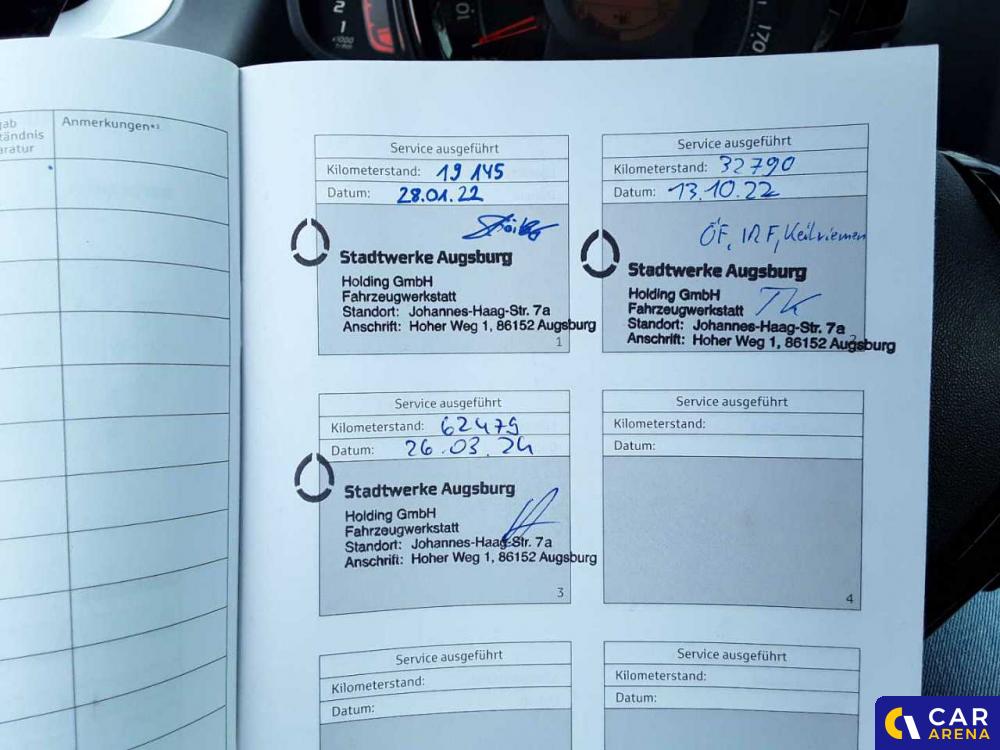 2
1
x1000
101
170
gab
tändnis
aratur
Anmerkungen*³
Service ausgeführt
Kilometerstand: 19 145
Datum: 28.01.22
Stadtwerke Augsburg
Holding GmbH
Fahrzeugwerkstatt
Standort: Johannes-Haag-Str. 7a
Anschrift: Hoher Weg 1, 86152 Augsburg
1
Service ausgeführt
Kilometerstand: 32790
Datum: 13.10.22
ÖF, IRF, Keilriemen
Stadtwerke Augsburg
Holding GmbH
TK
Fahrzeugwerkstatt
Standort: Johannes-Haag-Str. 7a
Anschrift: Hoher Weg 1, 86152 Augsburg
Service ausgeführt
Kilometerstand: 62479
Datum: 26.03.24
Stadtwerke Augsburg
Holding GmbH
Fahrzeugwerkstatt
Standort: Johannes-Haag-Str. 7a
Anschrift: Hoher Weg 1, 86152 Augsburg
3
Service ausgeführt
Kilometerstand:
Datum:
4
Service ausgeführt
Kilometerstand:
Datum:
Service ausgeführt
Kilometerstand:
Datum:
CAR
ARENA